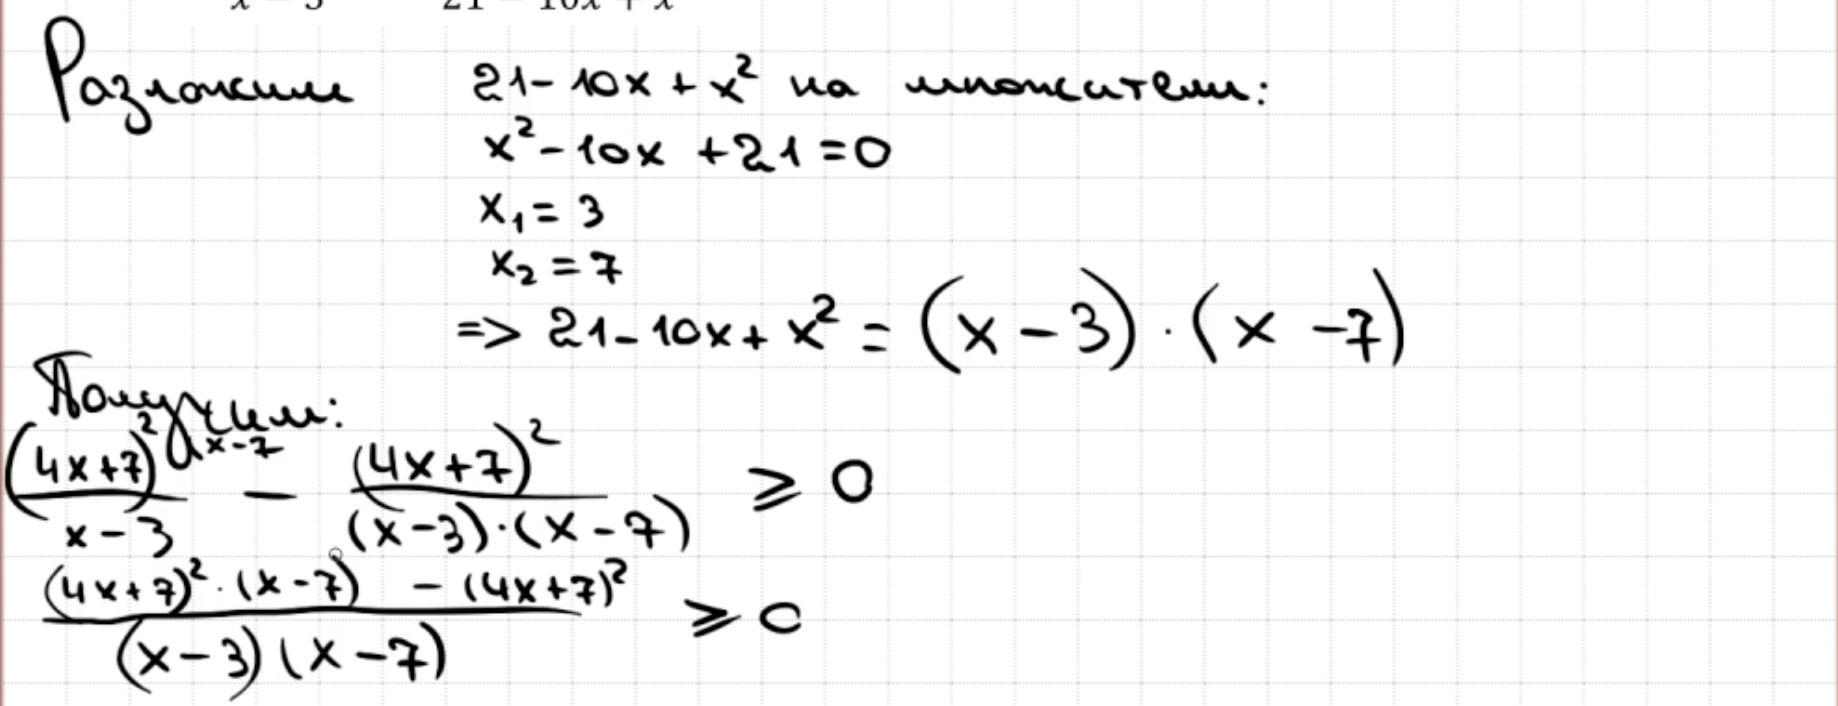 x − 3 21 − 10x + x
Разложим 21-10x+x² на множители:
x²-10x+21=0
x₁=3
x₂=7
=> 21-10x+x²=(x-3)·(x-7)
Получим:
(4x+7)² \x-7 / x-3 - (4x+7)² / (x-3)·(x-7) ⩾ 0
(4x+7)²·(x-7) - (4x+7)² / (x-3)(x-7) ⩾ 0